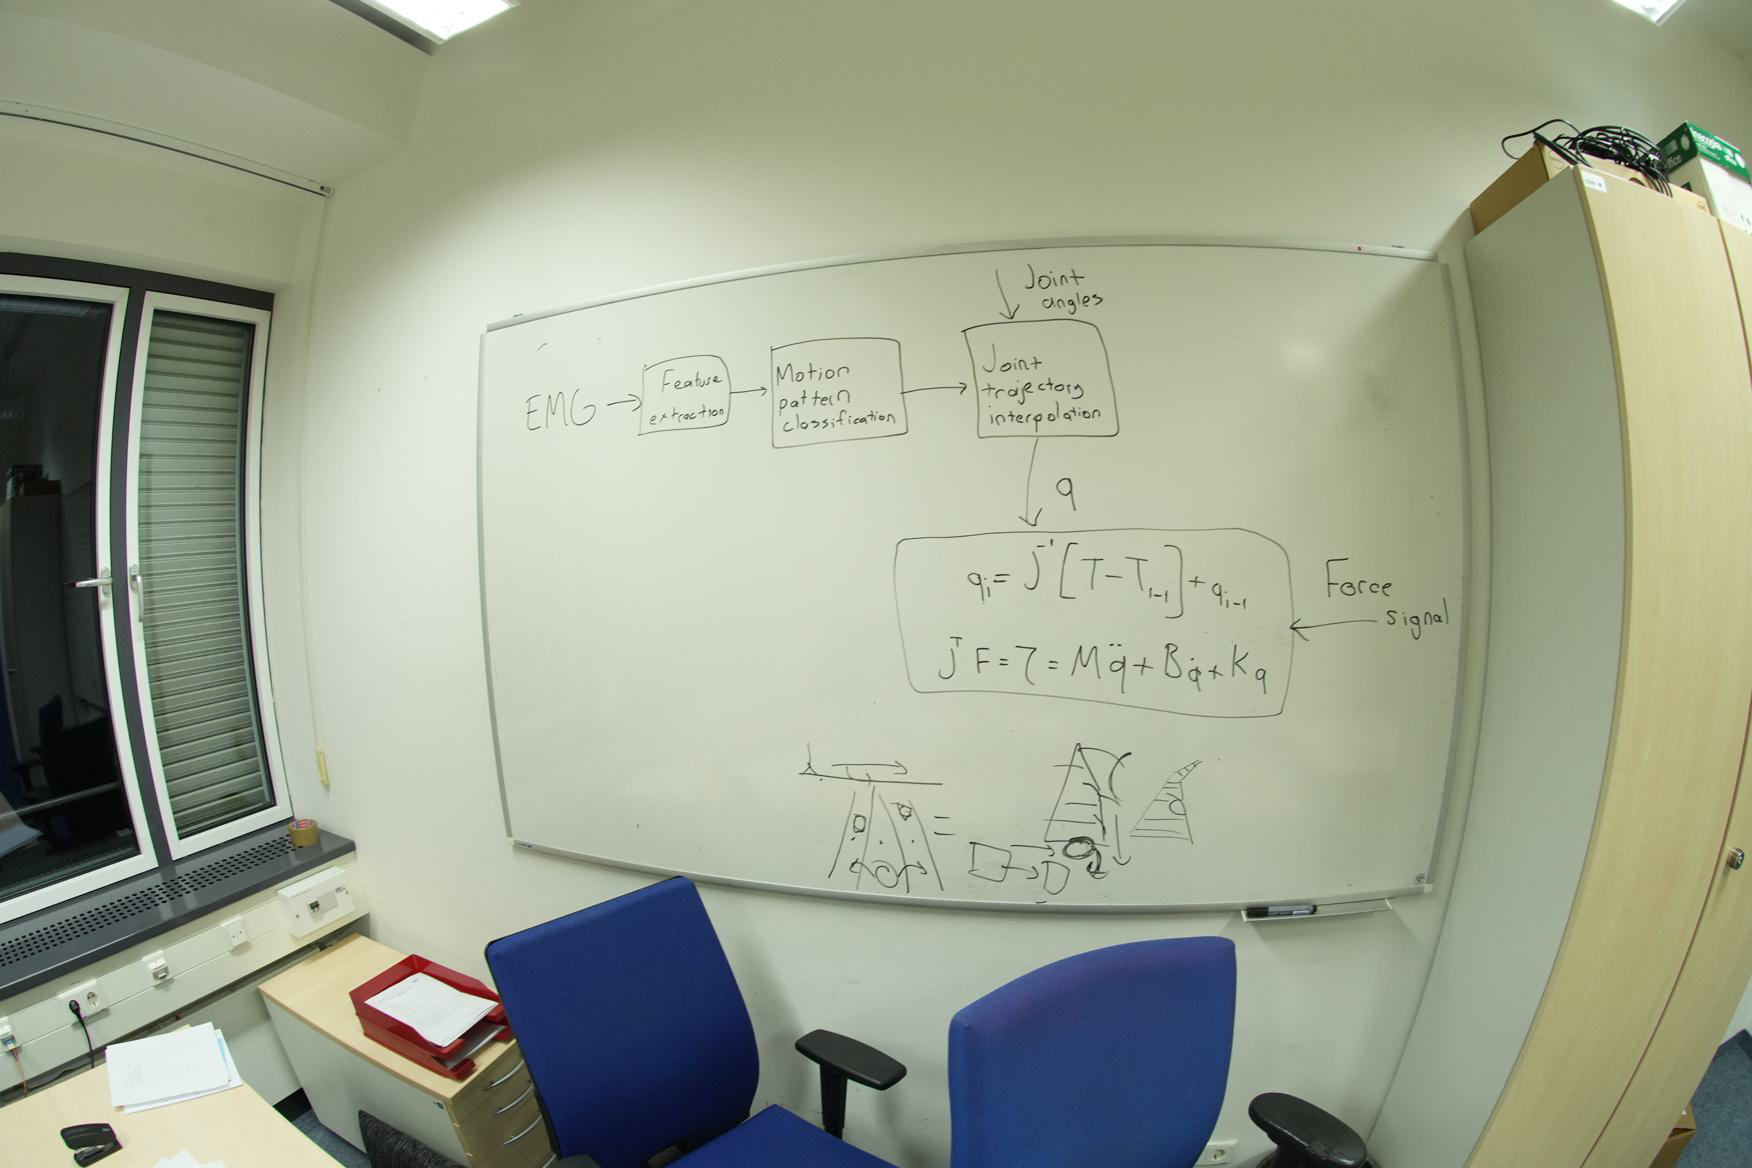 Joint
angles
EMG
Feature
extraction
Motion
pattern
classification
Joint
trajectory
interpolation
q
qᵢ = J⁻¹ [T - Tᵢ₋₁] + qᵢ₋₁
Force
signal
Jᵀ F = τ = M q̈ + B q̇ + K q